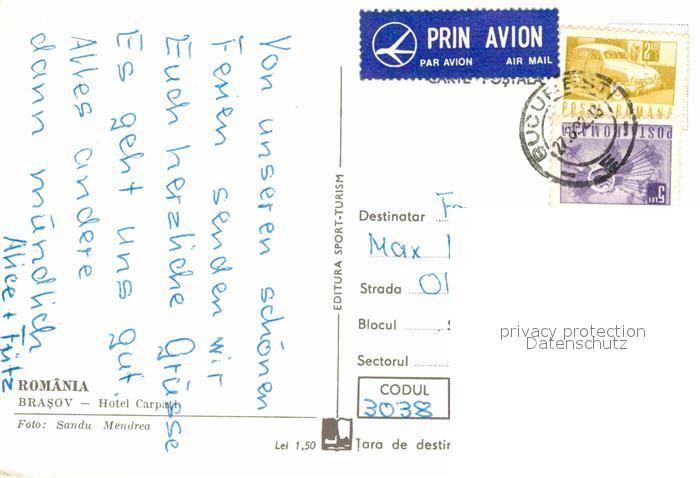 Von unseren schönen
Ferien senden wir
Euch herzliche Grüsse
Es geht uns gut.
Alles andere
dann mündlich
Alice + Fritz
ROMÂNIA
BRAȘOV — Hotel Carpați
Foto: Sandu Mendrea
Lei 1,50
EDITURA SPORT-TURISM
PRIN AVION
PAR AVION AIR MAIL
CARTE POȘTALĂ
2 LEI
POSTA ROMANA
BUCUREȘTI
POSTA ROMANA
5 LEI
Destinatar
Max
Strada
Blocul
Sectorul
CODUL
3038
Țara de destin
privacy protection
Datenschutz